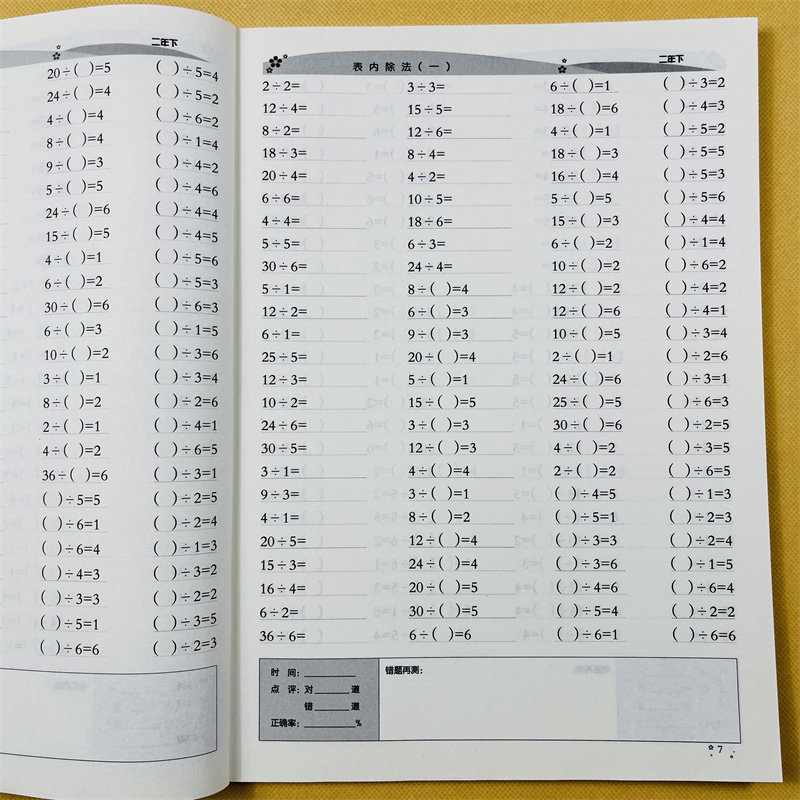 二年下
20÷( )=5 ( )÷5=4
24÷( )=4 ( )÷5=2
4÷( )=4 ( )÷6=2
8÷( )=4 ( )÷1=4
9÷( )=3 ( )÷4=2
5÷( )=5 ( )÷4=6
24÷( )=6 ( )÷4=4
15÷( )=5 ( )÷4=5
4÷( )=1 ( )÷5=6
6÷( )=2 ( )÷5=3
30÷( )=6 ( )÷6=3
6÷( )=3 ( )÷1=5
10÷( )=2 ( )÷3=6
3÷( )=1 ( )÷3=4
8÷( )=2 ( )÷2=6
2÷( )=1 ( )÷4=1
4÷( )=2 ( )÷6=5
36÷( )=6 ( )÷3=1
( )÷5=5 ( )÷2=5
( )÷6=1 ( )÷2=4
( )÷6=4 ( )÷1=3
( )÷4=3 ( )÷3=2
( )÷3=3 ( )÷2=2
( )÷5=1 ( )÷3=5
( )÷6=6 ( )÷2=3
表内除法(一) 二年下
2÷2= 3÷3= 6÷( )=1 ( )÷3=2
12÷4= 15÷5= 18÷( )=6 ( )÷4=3
8÷2= 12÷6= 4÷( )=1 ( )÷5=2
18÷3= 8÷4= 18÷( )=3 ( )÷5=5
20÷4= 4÷2= 16÷( )=4 ( )÷5=3
6÷6= 10÷5= 5÷( )=5 ( )÷5=6
4÷4= 18÷6= 15÷( )=3 ( )÷4=4
5÷5= 6÷3= 6÷( )=2 ( )÷1=4
30÷6= 24÷4= 10÷( )=2 ( )÷6=2
5÷1= 8÷( )=4 12÷( )=2 ( )÷4=2
12÷2= 6÷( )=3 12÷( )=6 ( )÷4=1
6÷1= 9÷( )=3 10÷( )=5 ( )÷3=4
25÷5= 20÷( )=4 2÷( )=1 ( )÷2=6
12÷3= 5÷( )=1 24÷( )=6 ( )÷3=1
10÷2= 15÷( )=5 25÷( )=5 ( )÷6=3
24÷6= 3÷( )=3 30÷( )=6 ( )÷2=5
30÷5= 12÷( )=3 4÷( )=2 ( )÷3=5
3÷1= 4÷( )=4 2÷( )=2 ( )÷6=5
9÷3= 3÷( )=1 ( )÷4=5 ( )÷1=3
4÷1= 8÷( )=2 ( )÷5=1 ( )÷2=3
20÷5= 12÷( )=4 ( )÷3=3 ( )÷2=4
15÷3= 24÷( )=4 ( )÷3=6 ( )÷1=5
16÷4= 20÷( )=5 ( )÷4=6 ( )÷6=4
6÷2= 30÷( )=5 ( )÷5=4 ( )÷2=2
36÷6= 6÷( )=6 ( )÷6=1 ( )÷6=6
时 间：________ 错题再测：
点 评：对______道
错______道
正确率：________%
7